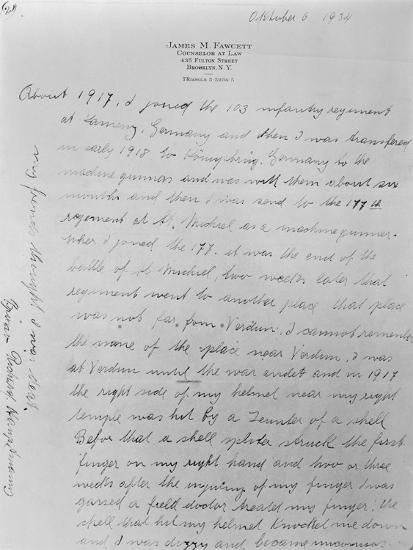 Oktober 6 1934
JAMES M. FAWCETT
COUNSELOR AT LAW
435 FULTON STREET
BROOKLYN, N.Y.
TRIANGLE 5
About 1917, I joined the 103 infantry regement
at Germany and then I was transfered
in early 1918 to Germany to the
machine gunners and was with them about six
months and then I was send to the 177 th
regement at St. Michiel as a machine gunner.
when I joined the 177. it was the end of the
battle of St Michiel, two weeks later that
regiment went to another place that place
was not far from Verdun. I cannot remember
the name of the place near Verdun. I was
at Verdun until the war endet and in 1917
the right side of my helmet near my right
temple was hit by a of a shell
Befor that a shell struck the first
finger on my right hand and two or three
weeks after the of my finger I was
gassed a field doctor treated my finger. the
shell that hit my helmed Knocket me down
and I was dizzy and became
my friends thought I was dead.
Bruno Richard Hauptmann